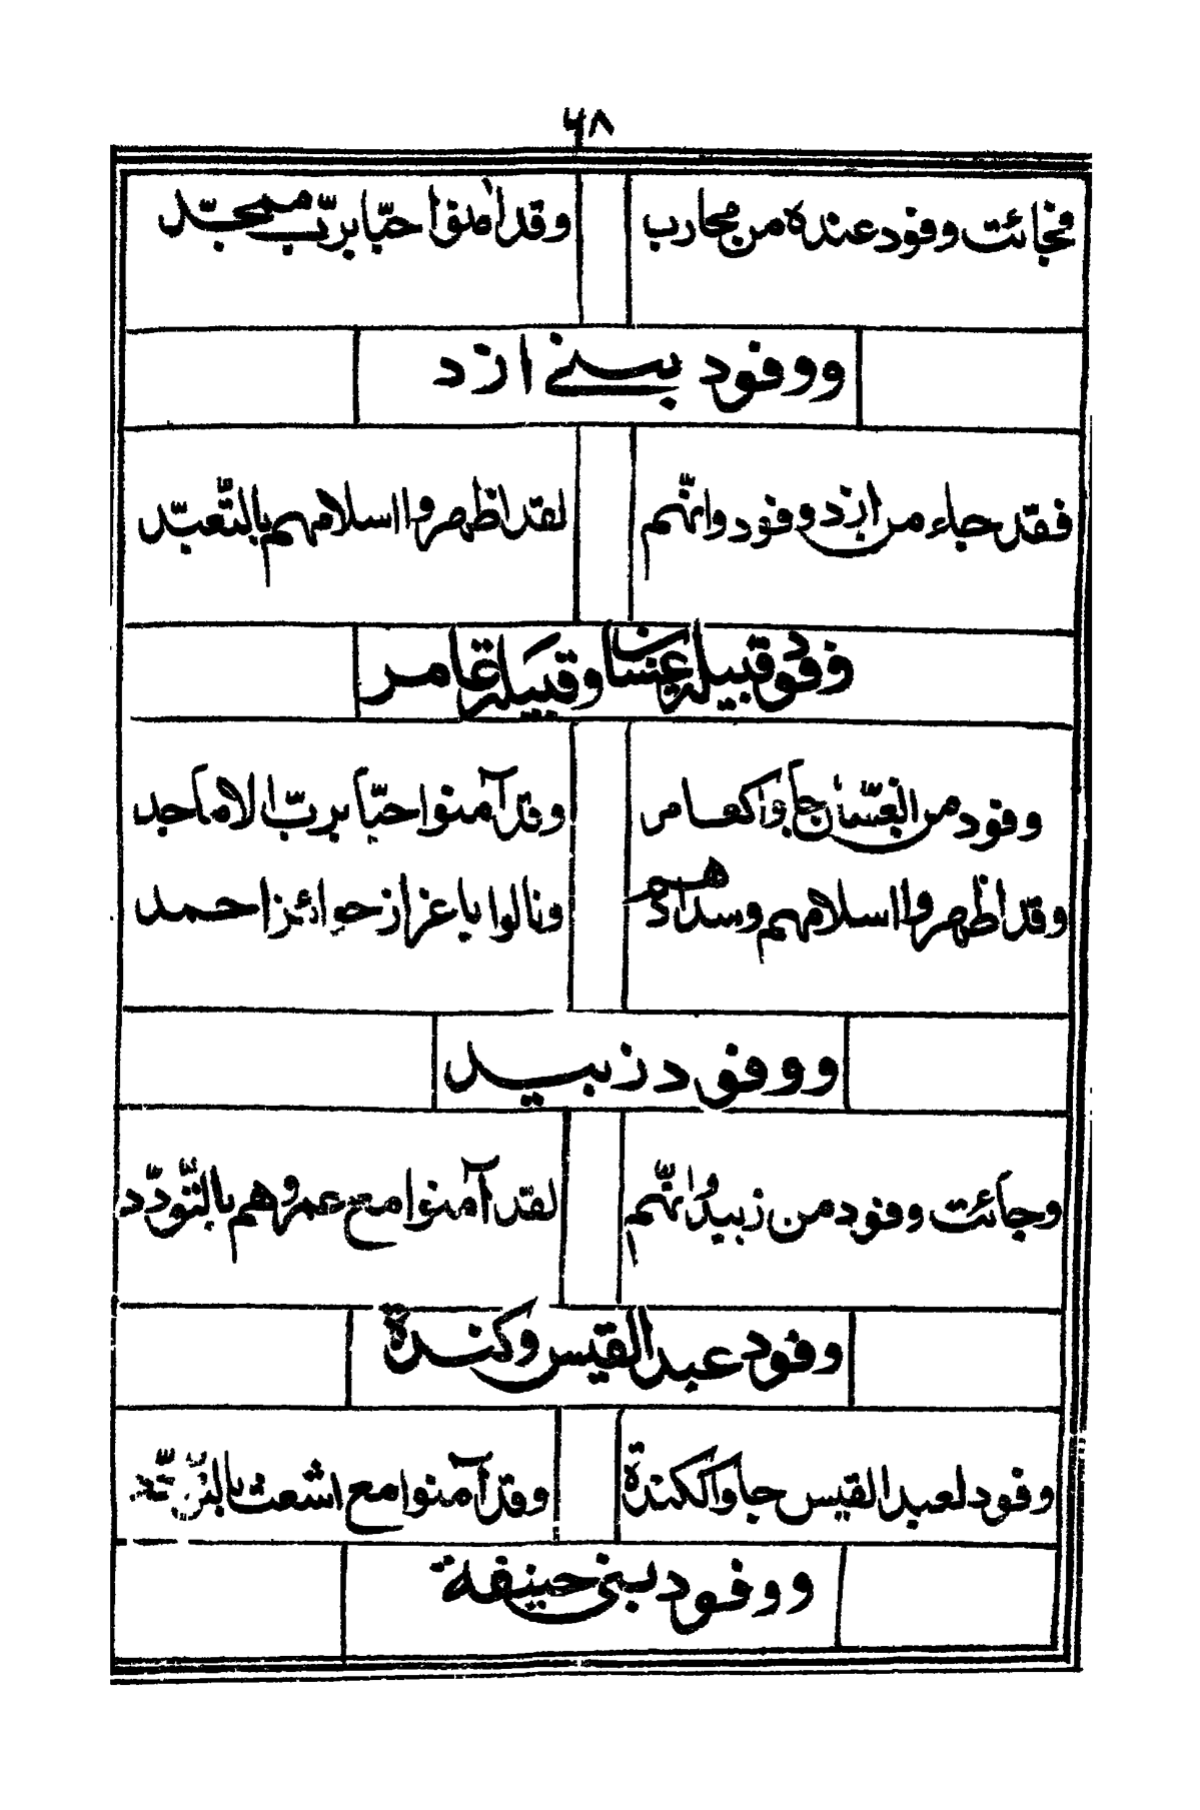 ۶۸
فجائت وفود عنده من محارب وقد اٰمنوا حبّا بربّ ممجّد
ووفود بنی ازد
فقد جاء من ازد وفود وانّهم لقد اظهروا اسلامهم بالتّعبّد
وفود قبیله غسان و قبیله عامر
وفود من الغسّان جاؤا کعامر وقد آمنوا حبّا بربّ الاماجد
وقد اظهروا اسلامهم وسدادهم ونالوا باعزاز جوائز احمد
ووفود زبید
وجائت وفود من زبید وانّهم لقد آمنوا مع عمروهم بالتّودّد
وفود عبد القیس وکندة
وفود لعبد القیس جاوا ککندة وقد آمنوا مع اشعث
ووفود بنی حنیفة